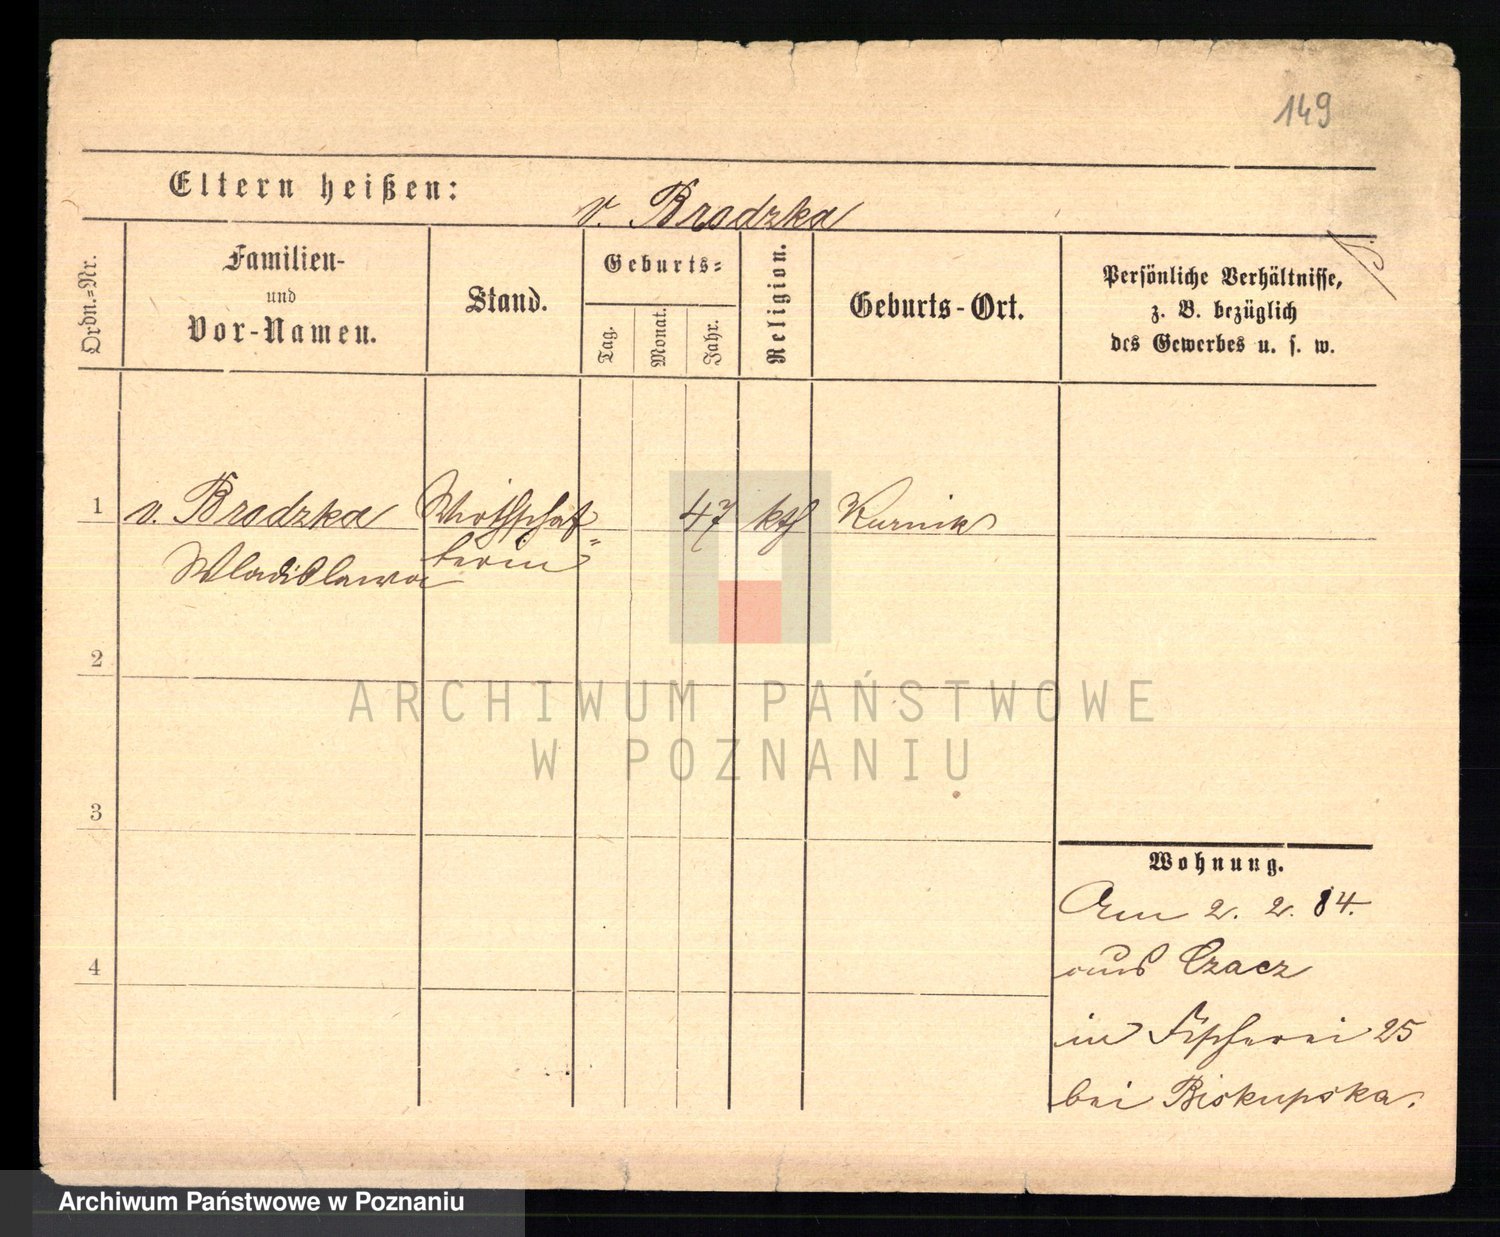 149
Eltern heißen: v. Brodzka
Ordn.=Nr.
Familien-
und
Vor-Namen.
Stand.
Geburts=
Tag.
Monat.
Jahr.
Religion.
Geburts-Ort.
Persönliche Verhältnisse,
z. B. bezüglich
des Gewerbes u. s. w.
1 v. Brodzka Wirthschaf= 47 kth Kurnik
Wladislawa terin
2
3
4
Wohnung.
Am 2. 2. 84.
aus Czacz
in Fischerei 25
bei Biskupska.
ARCHIWUM PAŃSTWOWE
W POZNANIU
Archiwum Państwowe w Poznaniu